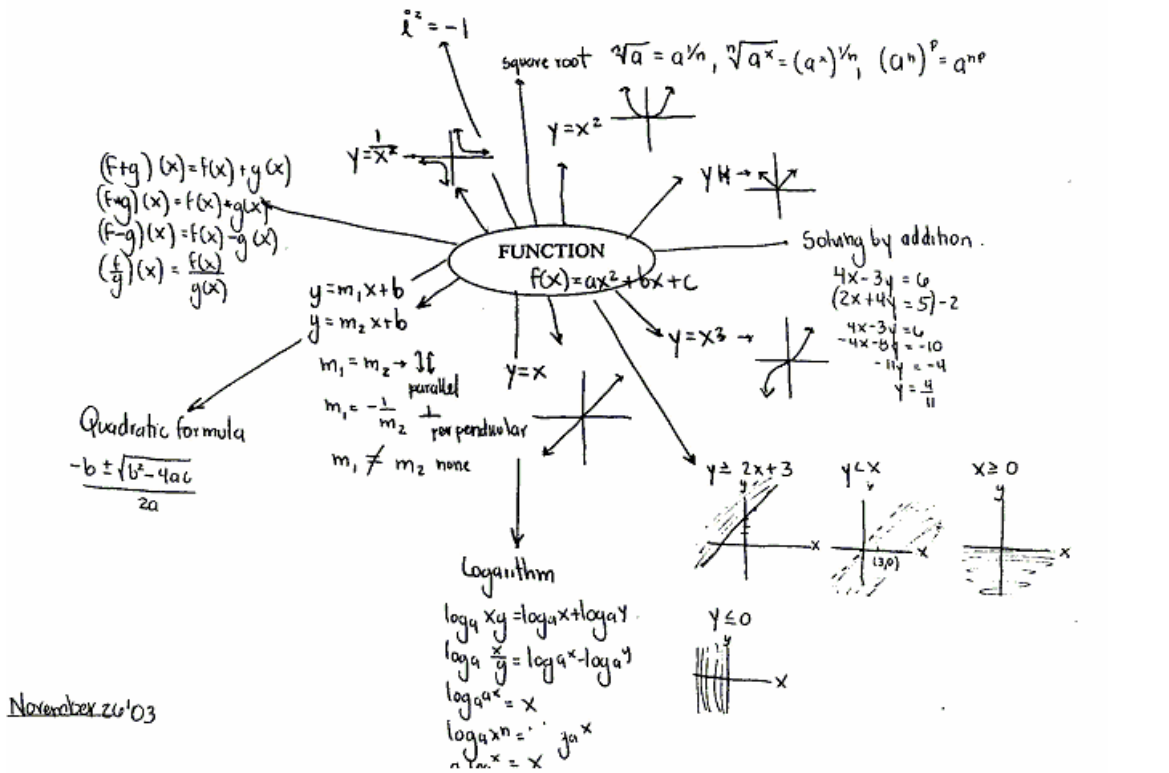 i² = -1
square root ⁿ√a = a^1/n, ⁿ√a^x = (a^x)^1/n, (a^n)^p = a^np
y = x²
y = 1/x²
y
(f+g)(x) = f(x) + g(x)
(f*g)(x) = f(x) * g(x)
(f-g)(x) = f(x) - g(x)
(f/g)(x) = f(x)/g(x)
FUNCTION
f(x) = ax² + bx + c
Solving by addition.
4x - 3y = 6
(2x + 4y = 5) - 2
4x - 3y = 6
-4x - 8y = -10
-11y = -4
y = 4/11
y = m₁x + b
y = m₂x + b
m₁ = m₂ → parallel
m₁ = -1/m₂ ⊥ perpendicular
m₁ ≠ m₂ none
y = x
y = x³ →
Quadratic formula
-b ± √b² - 4ac
2a
y ≥ 2x + 3
y
x
y < x
y
x
(3,0)
x ≥ 0
y
x
y ≤ 0
y
x
Logarithm
logₐ xy = logₐ x + logₐ y
logₐ x/y = logₐ x - logₐ y
logₐ a^x = x
logₐ x^n =
= x
November 26 '03